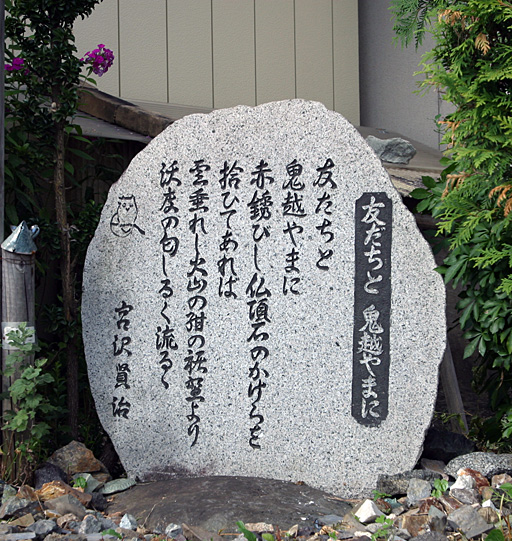 友だちと 鬼越やまに
友だちと
鬼越やまに
赤錆びし仏頂石のかけらを
拾ひてあれば
雲垂れし火山の紺の裾野より
沃度の匂しるく流るゝ
宮沢賢治